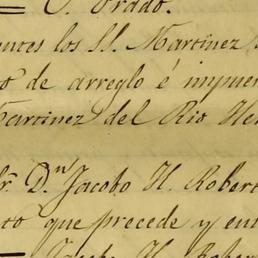 = C. Prado.
entes los SS. Martinez
to de arreglo é impues
Martinez del Rio He
Sr. Dn Jacobo H. Robert
to que precede y en
= Jacobo H. Robert